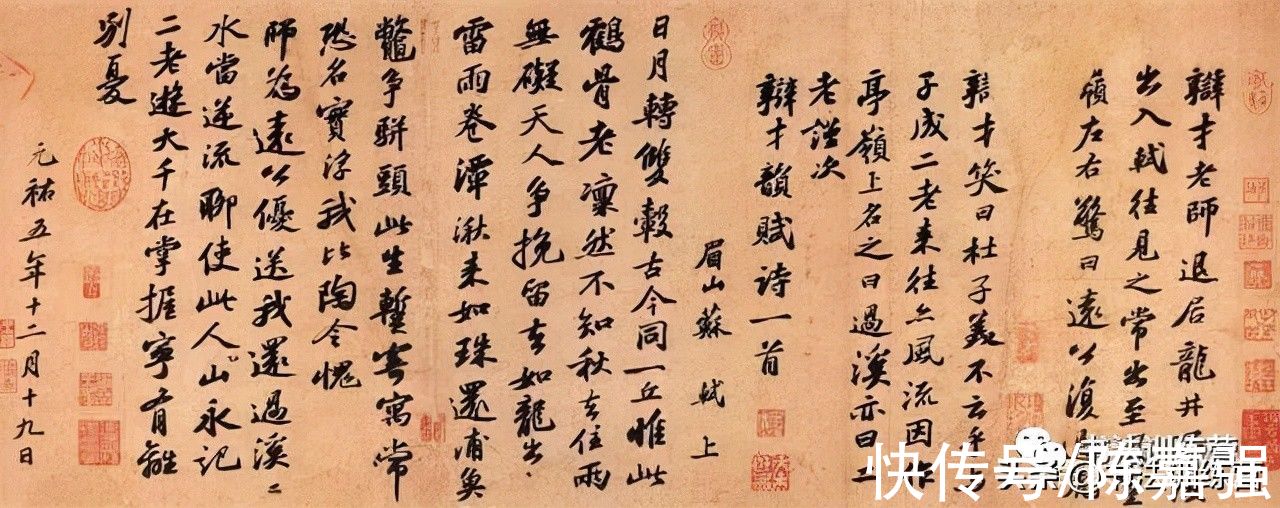 辯才老師退居龍井
出入軾往見之常出至
嶺左右驚曰遠公復
辯才笑曰杜子美不云乎
子成二老來往亦風流因作
亭嶺上名之曰過溪亦曰二
老謹次
辯才韻賦詩一首
眉山蘇軾上
日月轉雙轂古今同一丘惟此
鶴骨老凜然不知秋去住兩
無礙天人爭挽留去如龍出
雷雨卷潭湫來如珠還浦魚
鱉爭駢頭此生暫寄寓常
恐名實浮我比陶令愧
師為遠公優送我還過溪〻
水當逆流聊使此人山永記
二老遊大千在掌握寧有離
別憂
元祐五年十二月十九日
快传号/陈嘉强